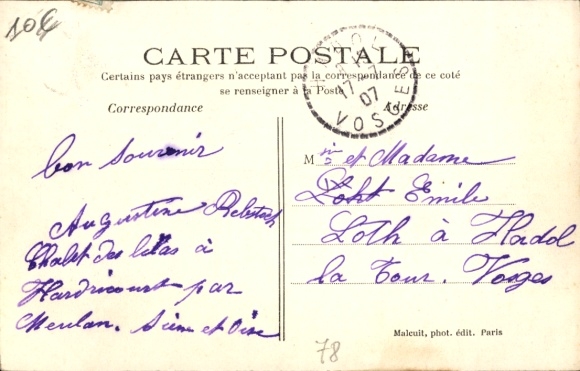 10€
CARTE POSTALE
Certains pays étrangers n'acceptant pas la correspondance de ce coté
se renseigner à la Poste
Correspondance
Adresse
17-7
07
VOSGES
bon souvenir
Augustine
Chalet des lilas à
Hardricourt par
Meulan. Seine et Oise
Mr et Madame
Loht Emile
Loth à Hadol
la Tour. Vosges
Malcuit, phot. édit. Paris
78